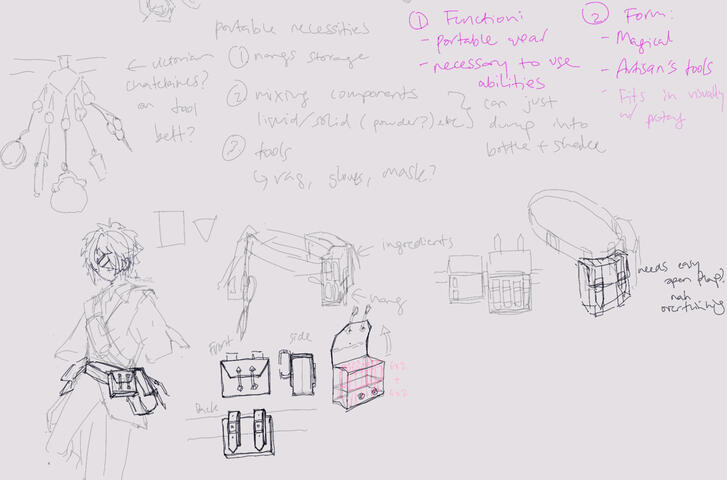 portable necessities
① nangs storage
② mixing components
liquid/solid (powder?) etc
can just
dump into
bottle + shake
③ tools
↳ rag, gloves, mask?
← victorian
chatelaines?
on tool
belt?
① Function:
- portable wear
- necessary to use
abilities
② Form:
- Magical
- Artisan's tools
- Fits in visually
w/
ingredients
nang
front
side
Back
6x2
+
6x2
needs easy
open
nah
overthinking